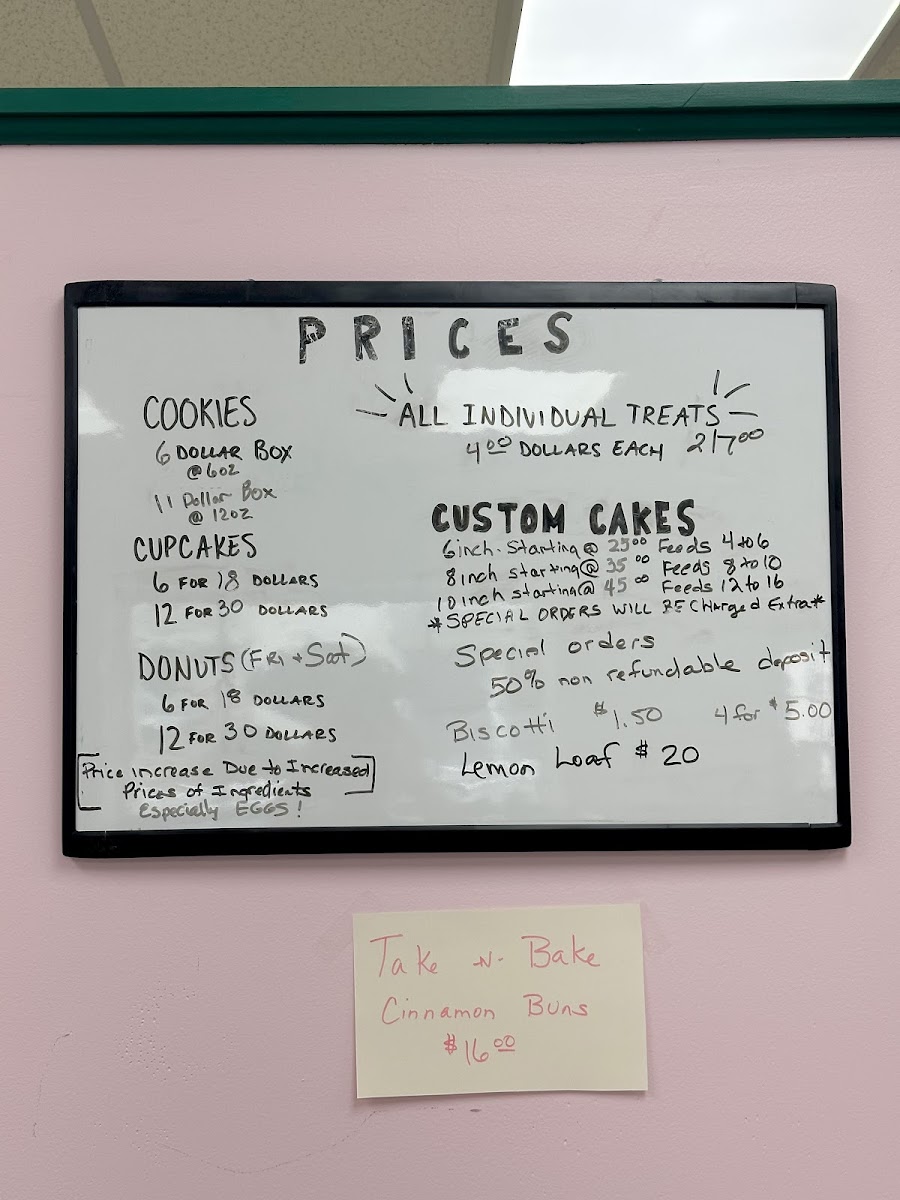 PRICES
COOKIES
6 DOLLAR BOX
@ 6oz
11 Dollar Box
@ 12oz
CUPCAKES
6 FOR 18 DOLLARS
12 FOR 30 DOLLARS
DONUTS (FRI + Sat)
6 FOR 18 DOLLARS
12 FOR 30 DOLLARS
Price increase Due to Increased
Prices of Ingredients
Especially EGGS!
ALL INDIVIDUAL TREATS
4.00 DOLLARS EACH 2/7.00
CUSTOM CAKES
6inch. Starting @ 25.00 Feeds 4 to 6
8inch starting @ 35.00 Feeds 8 to 10
10inch starting @ 45.00 Feeds 12 to 16
*SPECIAL ORDERS WILL BE Charged Extra*
Special orders
50% non refundable deposit
Biscotti $1.50 4 for $5.00
Lemon Loaf $20
Take -N- Bake
Cinnamon Buns
$16.00